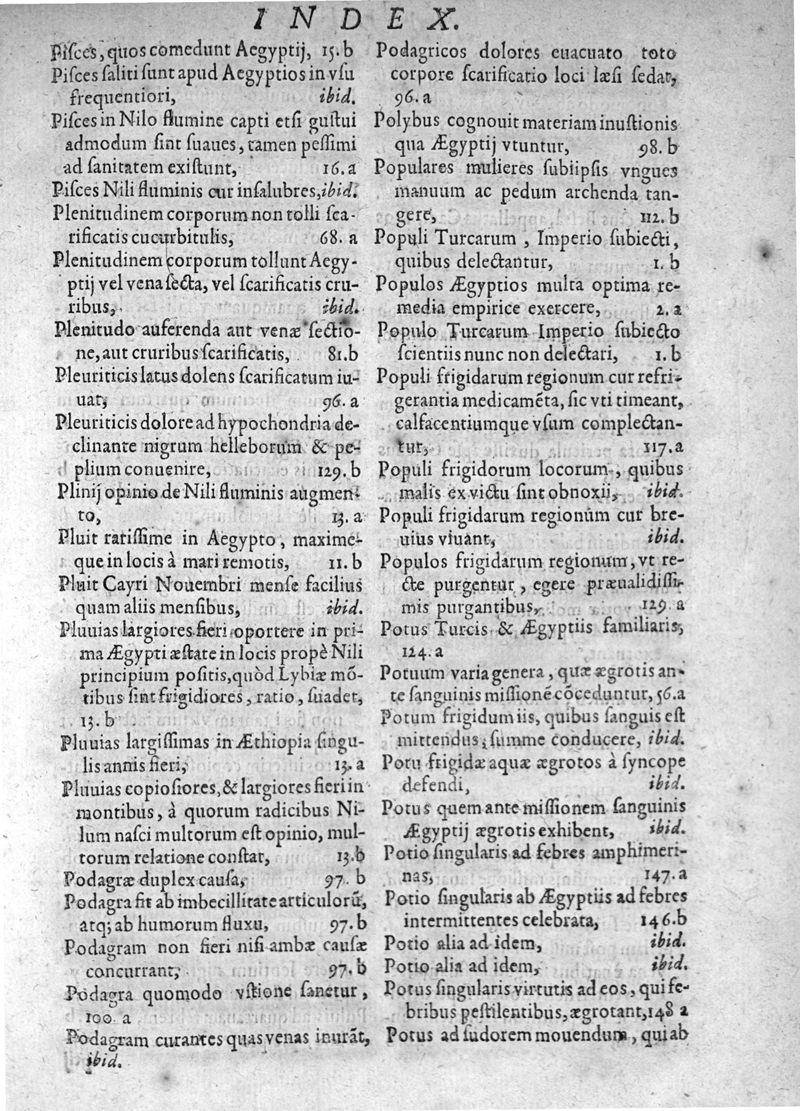 INDEX.
Pisces, quos comedunt Aegyptij, 15. b
Pisces saliti sunt apud Aegyptios in vsu
frequentiori, ibid.
Pisces in Nilo flumine capti etsi gustui
admodum sint suaues, tamen pessimi
ad sanitatem existunt, 16. a
Pisces Nili fluminis cur insalubres, ibid.
Plenitudinem corporum non tolli sca-
rificatis cucurbitulis, 68. a
Plenitudinem corporum tollunt Aegy-
ptij vel vena secta, vel scarificatis cru-
ribus, ibid.
Plenitudo auferenda aut venæ sectio-
ne, aut cruribus scarificatis, 81. b
Pleuriticis latus dolens scarificatum iu-
uat, 96. a
Pleuriticis dolore ad hypochondria de-
clinante nigrum helleborum & pe-
plium conuenire, 129. b
Plinij opinio de Nili fluminis augmen-
to, 13. a
Pluit rarissime in Aegypto, maxime-
que in locis à mari remotis, 11. b
Pluit Cayri Nouembri mense facilius
quam aliis mensibus, ibid.
Pluuias largiores fieri oportere in pri-
ma Ægypti æstate in locis propè Nili
principium positis, quòd Lybiæ mõ-
tibus sint frigidiores, ratio, suadet,
13. b
Pluuias largissimas in Æthiopia singu-
lis annis fieri, 13. a
Pluuias copiosiores, & largiores fieri in
montibus, à quorum radicibus Ni-
lum nasci multorum est opinio, mul-
torum relatione constat, 13. b
Podagræ duplex causa, 97. b
Podagra fit ab imbecillitate articulorũ,
atq; ab humorum fluxu, 97. b
Podagram non fieri nisi ambæ causæ
concurrant, 97. b
Podagra quomodo vstione sanetur,
100. a
Podagram curantes quas venas inurãt,
ibid.
Podagricos dolores euacuato toto
corpore scarificatio loci læsi sedat,
96. a
Polybus cognouit materiam inustionis
qua Ægyptij vtuntur, 98. b
Populares mulieres subiipsis vngues
manuum ac pedum archenda tan-
gere, 112. b
Populi Turcarum, Imperio subiecti,
quibus delectantur, 1. b
Populos Ægyptios multa optima re-
media empirice exercere, 2. a
Populo Turcarum Imperio subiecto
scientiis nunc non delectari, 1. b
Populi frigidarum regionum cur refri-
gerantia medicamẽta, sic vti timeant,
calfacentiumque vsum complectan-
tur, 117. a
Populi frigidorum locorum, quibus
malis ex victu sint obnoxii, ibid.
Populi frigidarum regionum cur bre-
uius viuant, ibid.
Populos frigidarum regionum, vt re-
cte purgentur, egere præualidissi-
mis purgantibus, 129. a
Potus Turcis & Ægyptiis familiaris,
124. a
Potuum varia genera, quæ ægrotis an-
te sanguinis missionẽ cõceduntur, 56. a
Potum frigidum iis, quibus sanguis est
mittendus, summe conducere, ibid.
Potu frigidæ aquæ ægrotos à syncope
defendi, ibid.
Potus quem ante missionem sanguinis
Ægyptij ægrotis exhibent, ibid.
Potio singularis ad febres amphimeri-
nas, 147. a
Potio singularis ab Ægyptiis ad febres
intermittentes celebrata, 146. b
Potio alia ad idem, ibid.
Potio alia ad idem, ibid.
Potus singularis virtutis ad eos, qui fe-
bribus pestilentibus, ægrotant, 148 a
Potus ad sudorem mouendum, qui ab